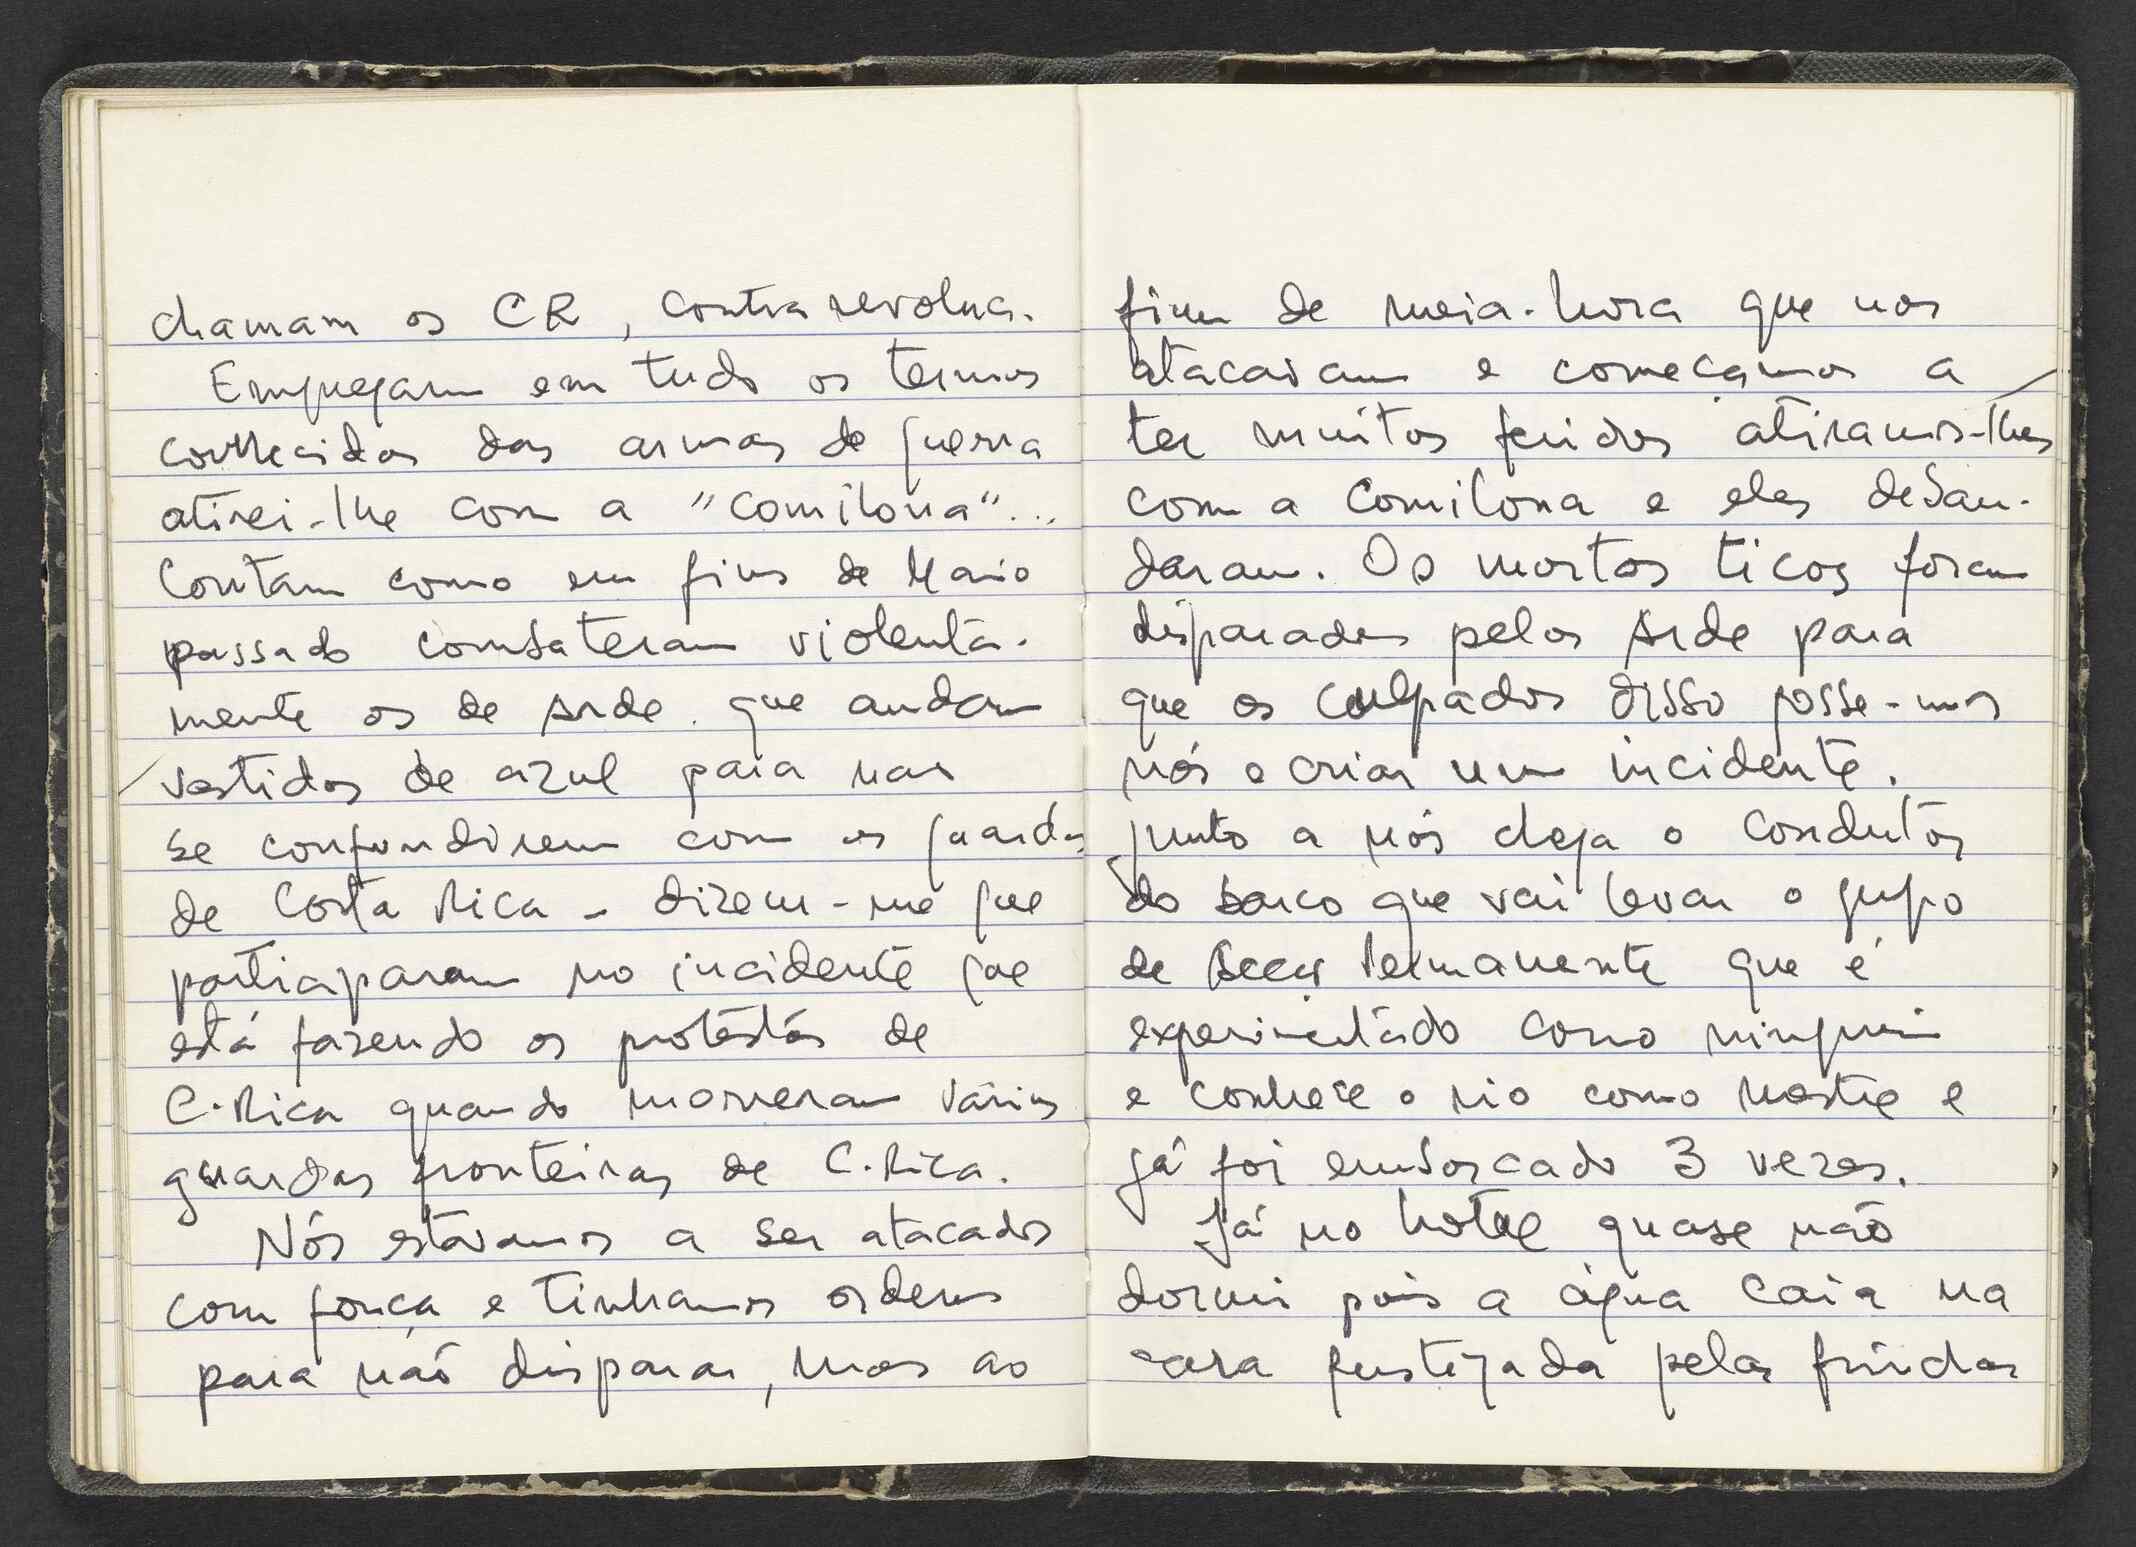 chamam os CR, contra revoluc.
Empregam em tudo os termos
conhecidos das armas de guerra
atirei-lhe com a "comilona"...
Contam como em fins de Maio
passado combateram violenta-
mente os de Arde. que andam
vestidos de azul para nao
se confundirem com os guardas
de Costa Rica - dizem-me que
participaram no incidente que
está fazendo os protestos de
C. Rica quando morreram vários
guardas fronteiras de C. Rica.
Nós estavamos a ser atacados
com força e tinhamos ordens
para não disparar, mas ao
fim de meia-hora que nos
atacavam e começamos a
ter muitos feridos atiramos-lhes
com a Comilona e eles desan-
daram. Os mortos ticos foram
disparados pelos Arde para
que os culpados disso fosse-mos
nós e criar um incidente.
Junto a nós chega o condutor
do barco que vai levar o grupo
de Permanente que é
experimentado como ninguem
e conhece o rio como mestre e
já foi emboscado 3 vezes.
Já no hotel quase não
dormi pois a água caia na
cara fustigada pelas